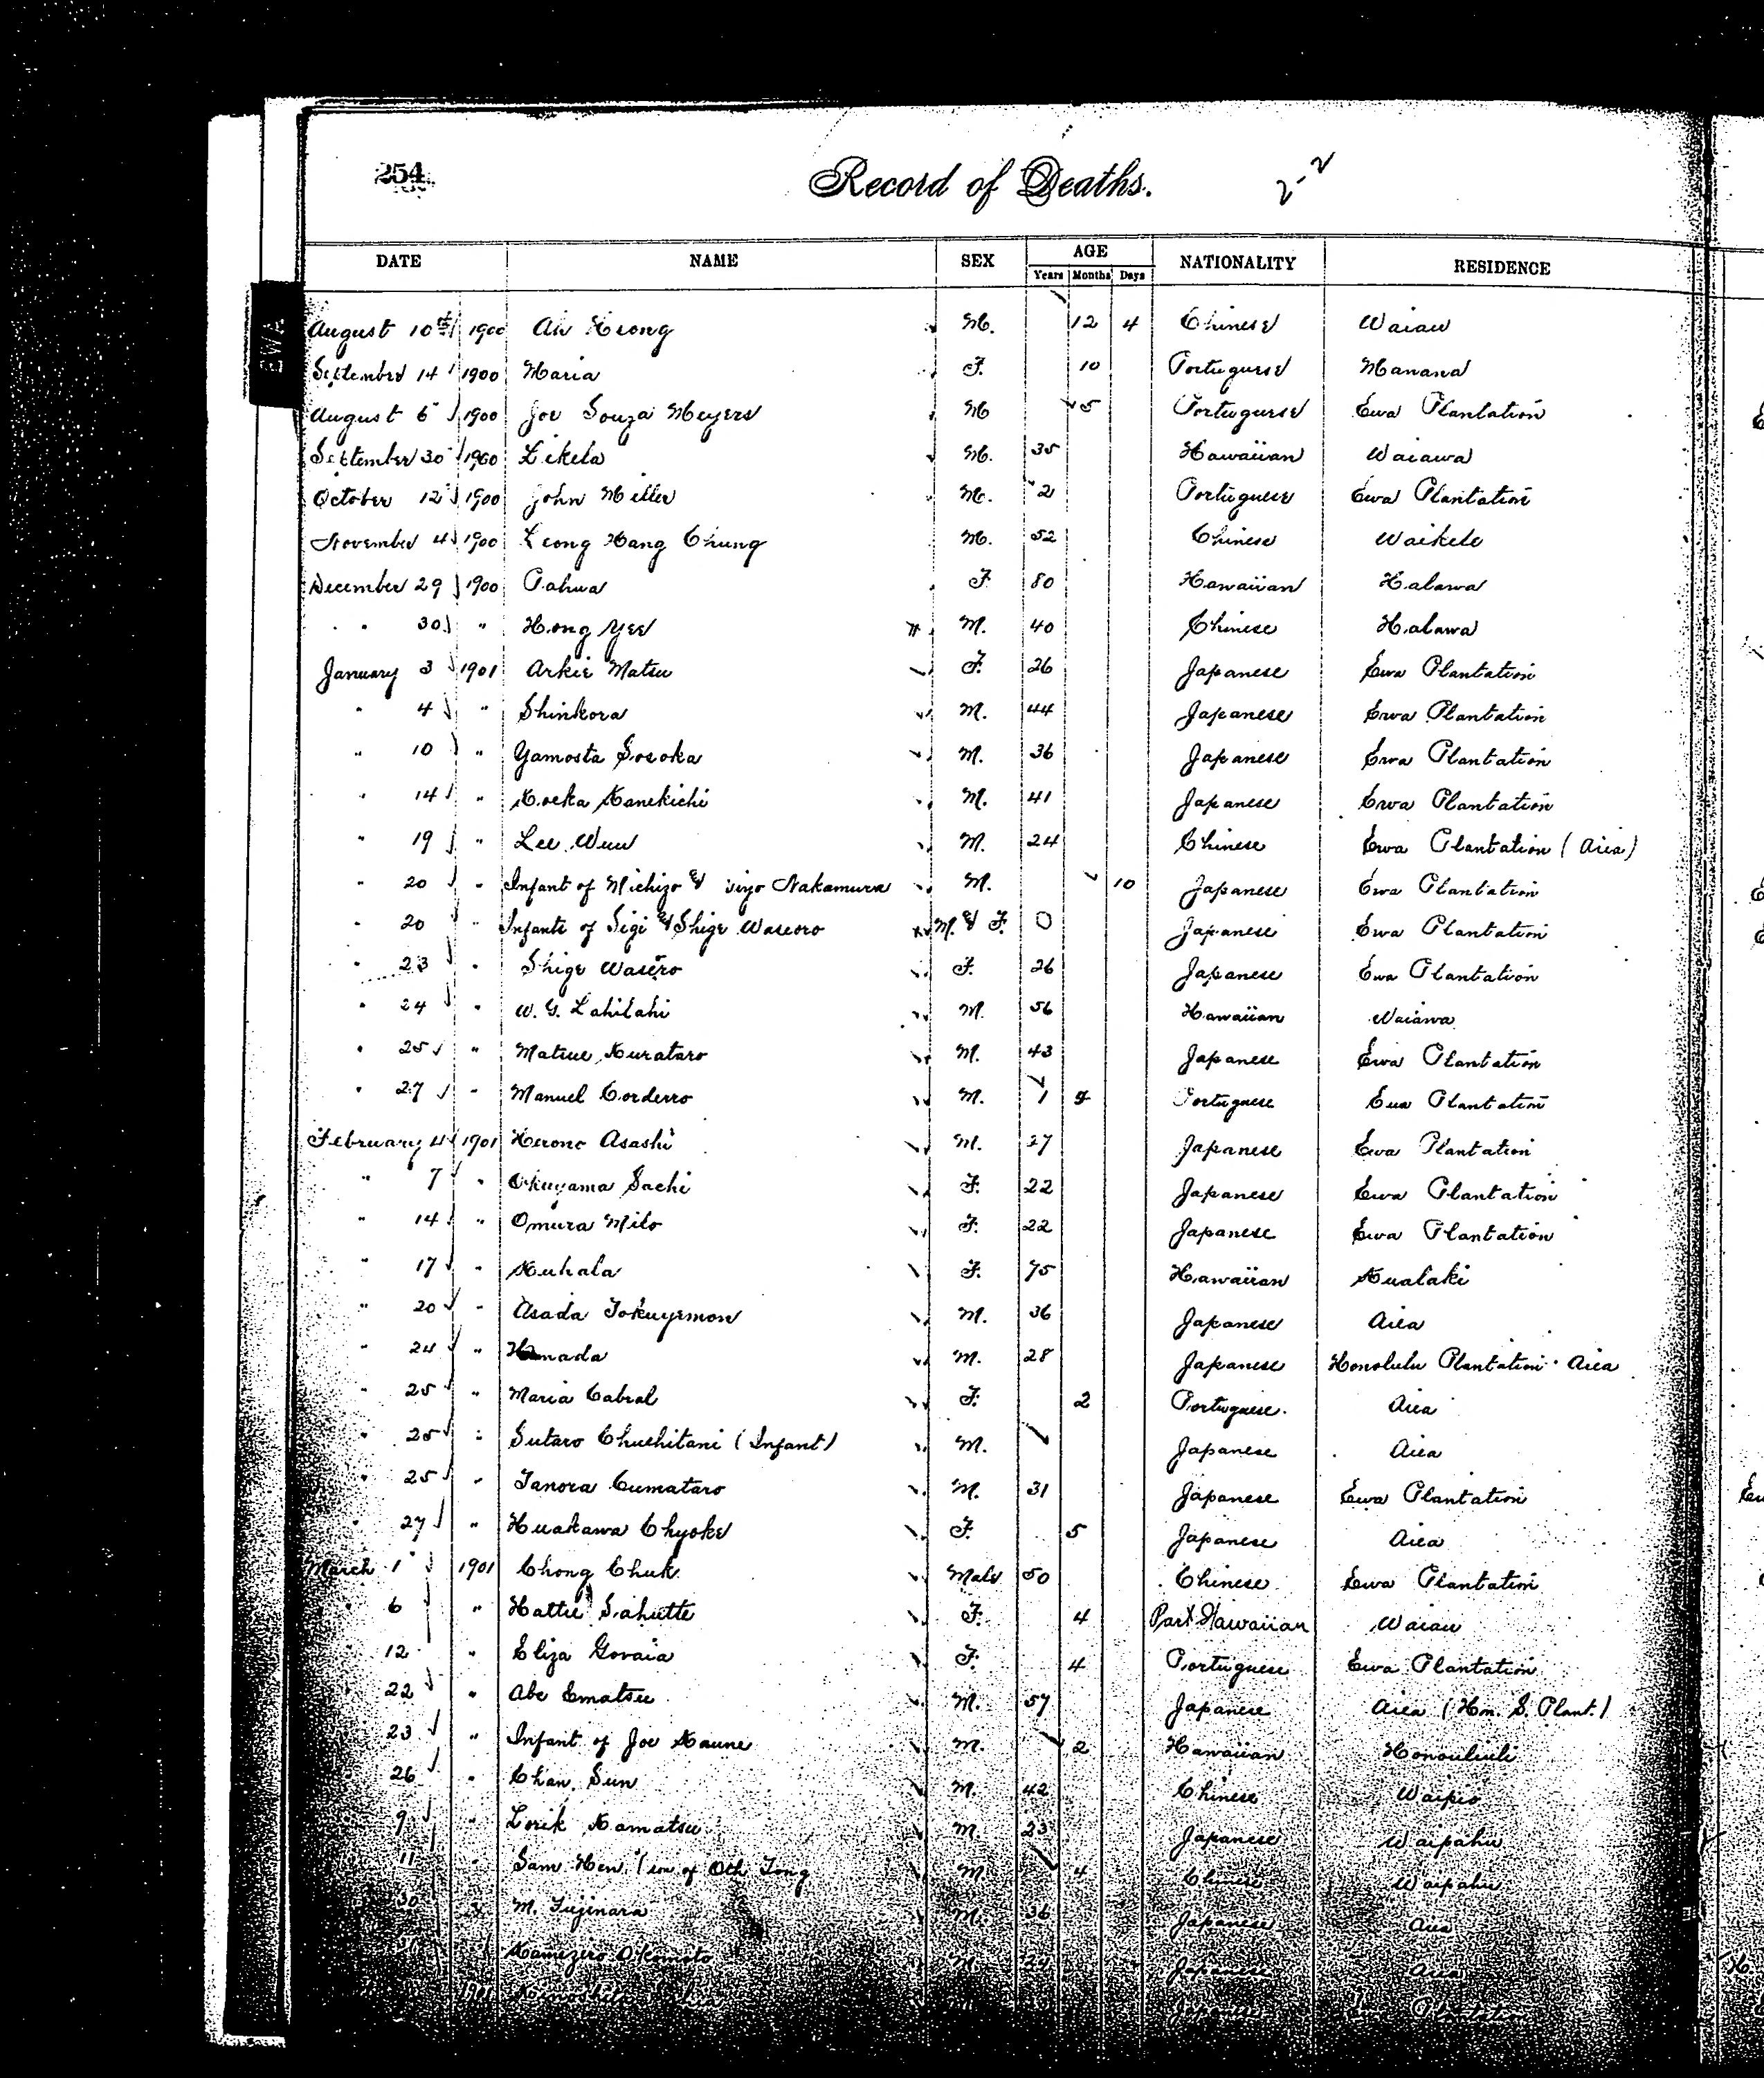 254
Record of Deaths.
2-2
DATE NAME SEX AGE NATIONALITY RESIDENCE
Years Months Days
EWA
August 10th 1900 Ah Keong M. 12 4 Chinese Waiau
September 14 1900 Maria F. 10 Portuguese Manana
August 6 1900 Joe Souza Meyers M 5 Portuguese Ewa Plantation
September 30 1900 Likela M. 35 Hawaiian Waiawa
October 12 1900 John Miller M. 2 Portuguese Ewa Plantation
November 4 1900 Leong Hang Chung M. 52 Chinese Waikele
December 29 1900 Pahua F 80 Hawaiian Halawa
" 30 " Hong Yee M. 40 Chinese Halawa
January 3 1901 Arkie Matsu F. 26 Japanese Ewa Plantation
" 4 " Shinkora M. 44 Japanese Ewa Plantation
" 10 " Yamosta Sosoka M. 36 Japanese Ewa Plantation
" 14 " Koeka Kanekichi M. 41 Japanese Ewa Plantation
" 19 " Lee Wuu M. 24 Chinese Ewa Plantation (Aiea)
" 20 " Infant of Michizo & Nakamura M. 10 Japanese Ewa Plantation
" 20 " Infants of Sigi & Shige Waseoro M. & F. 0 Japanese Ewa Plantation
" 23 " Shige Wasero F. 26 Japanese Ewa Plantation
" 24 " W. G. Lahilahi M. 56 Hawaiian Waiawa
" 25 " Matsue Kurataro M. 43 Japanese Ewa Plantation
" 27 " Manuel Corderro M. 1 Portuguese Ewa Plantation
February 4 1901 Herono Asashi M. 27 Japanese Ewa Plantation
" 7 " Okuyama Sachi F. 22 Japanese Ewa Plantation
" 14 " Omura Mito F. 22 Japanese Ewa Plantation
" 17 " Kuhala F. 75 Hawaiian Kualaki
" 20 " Asada Tokuyemon M. 36 Japanese Aiea
" 24 " Hamada M. 28 Japanese Honolulu Plantation · Aiea
" 25 " Maria Cabral F. 2 Portuguese. Aiea
" 25 " Sutaro Chuehitani (Infant) M. Japanese Aiea
" 25 " Tanora Cumataro M. 31 Japanese Ewa Plantation
" 27 " Huakawa Chyoke F. 5 Japanese Aiea
March 1 1901 Chong Chuk Male 50 Chinese Ewa Plantation
" 6 " Hattie Sahutte F. 4 Part Hawaiian Waiau
" 12 " Eliza Govaia F. 4 Portuguese Ewa Plantation
" 22 " Abe Ematsu M. 57 Japanese Aiea (Hon. S. Plant.)
" 23 " Infant of Joe Kaune M. 2 Hawaiian Honouliuli
26 " Chan Sun M. 42 Chinese Waipio
9 " Lorik Kamatsu M. 23 Japanese Waipahu
11 " Sam Hen (son of Oth Tong M. 4 Chinese Waipahu
30 M. Fujinara M. 36 Japanese Aiea
31 Kamezero Okomoto M. Japanese Aiea
1901 Japanese Ewa Plantation